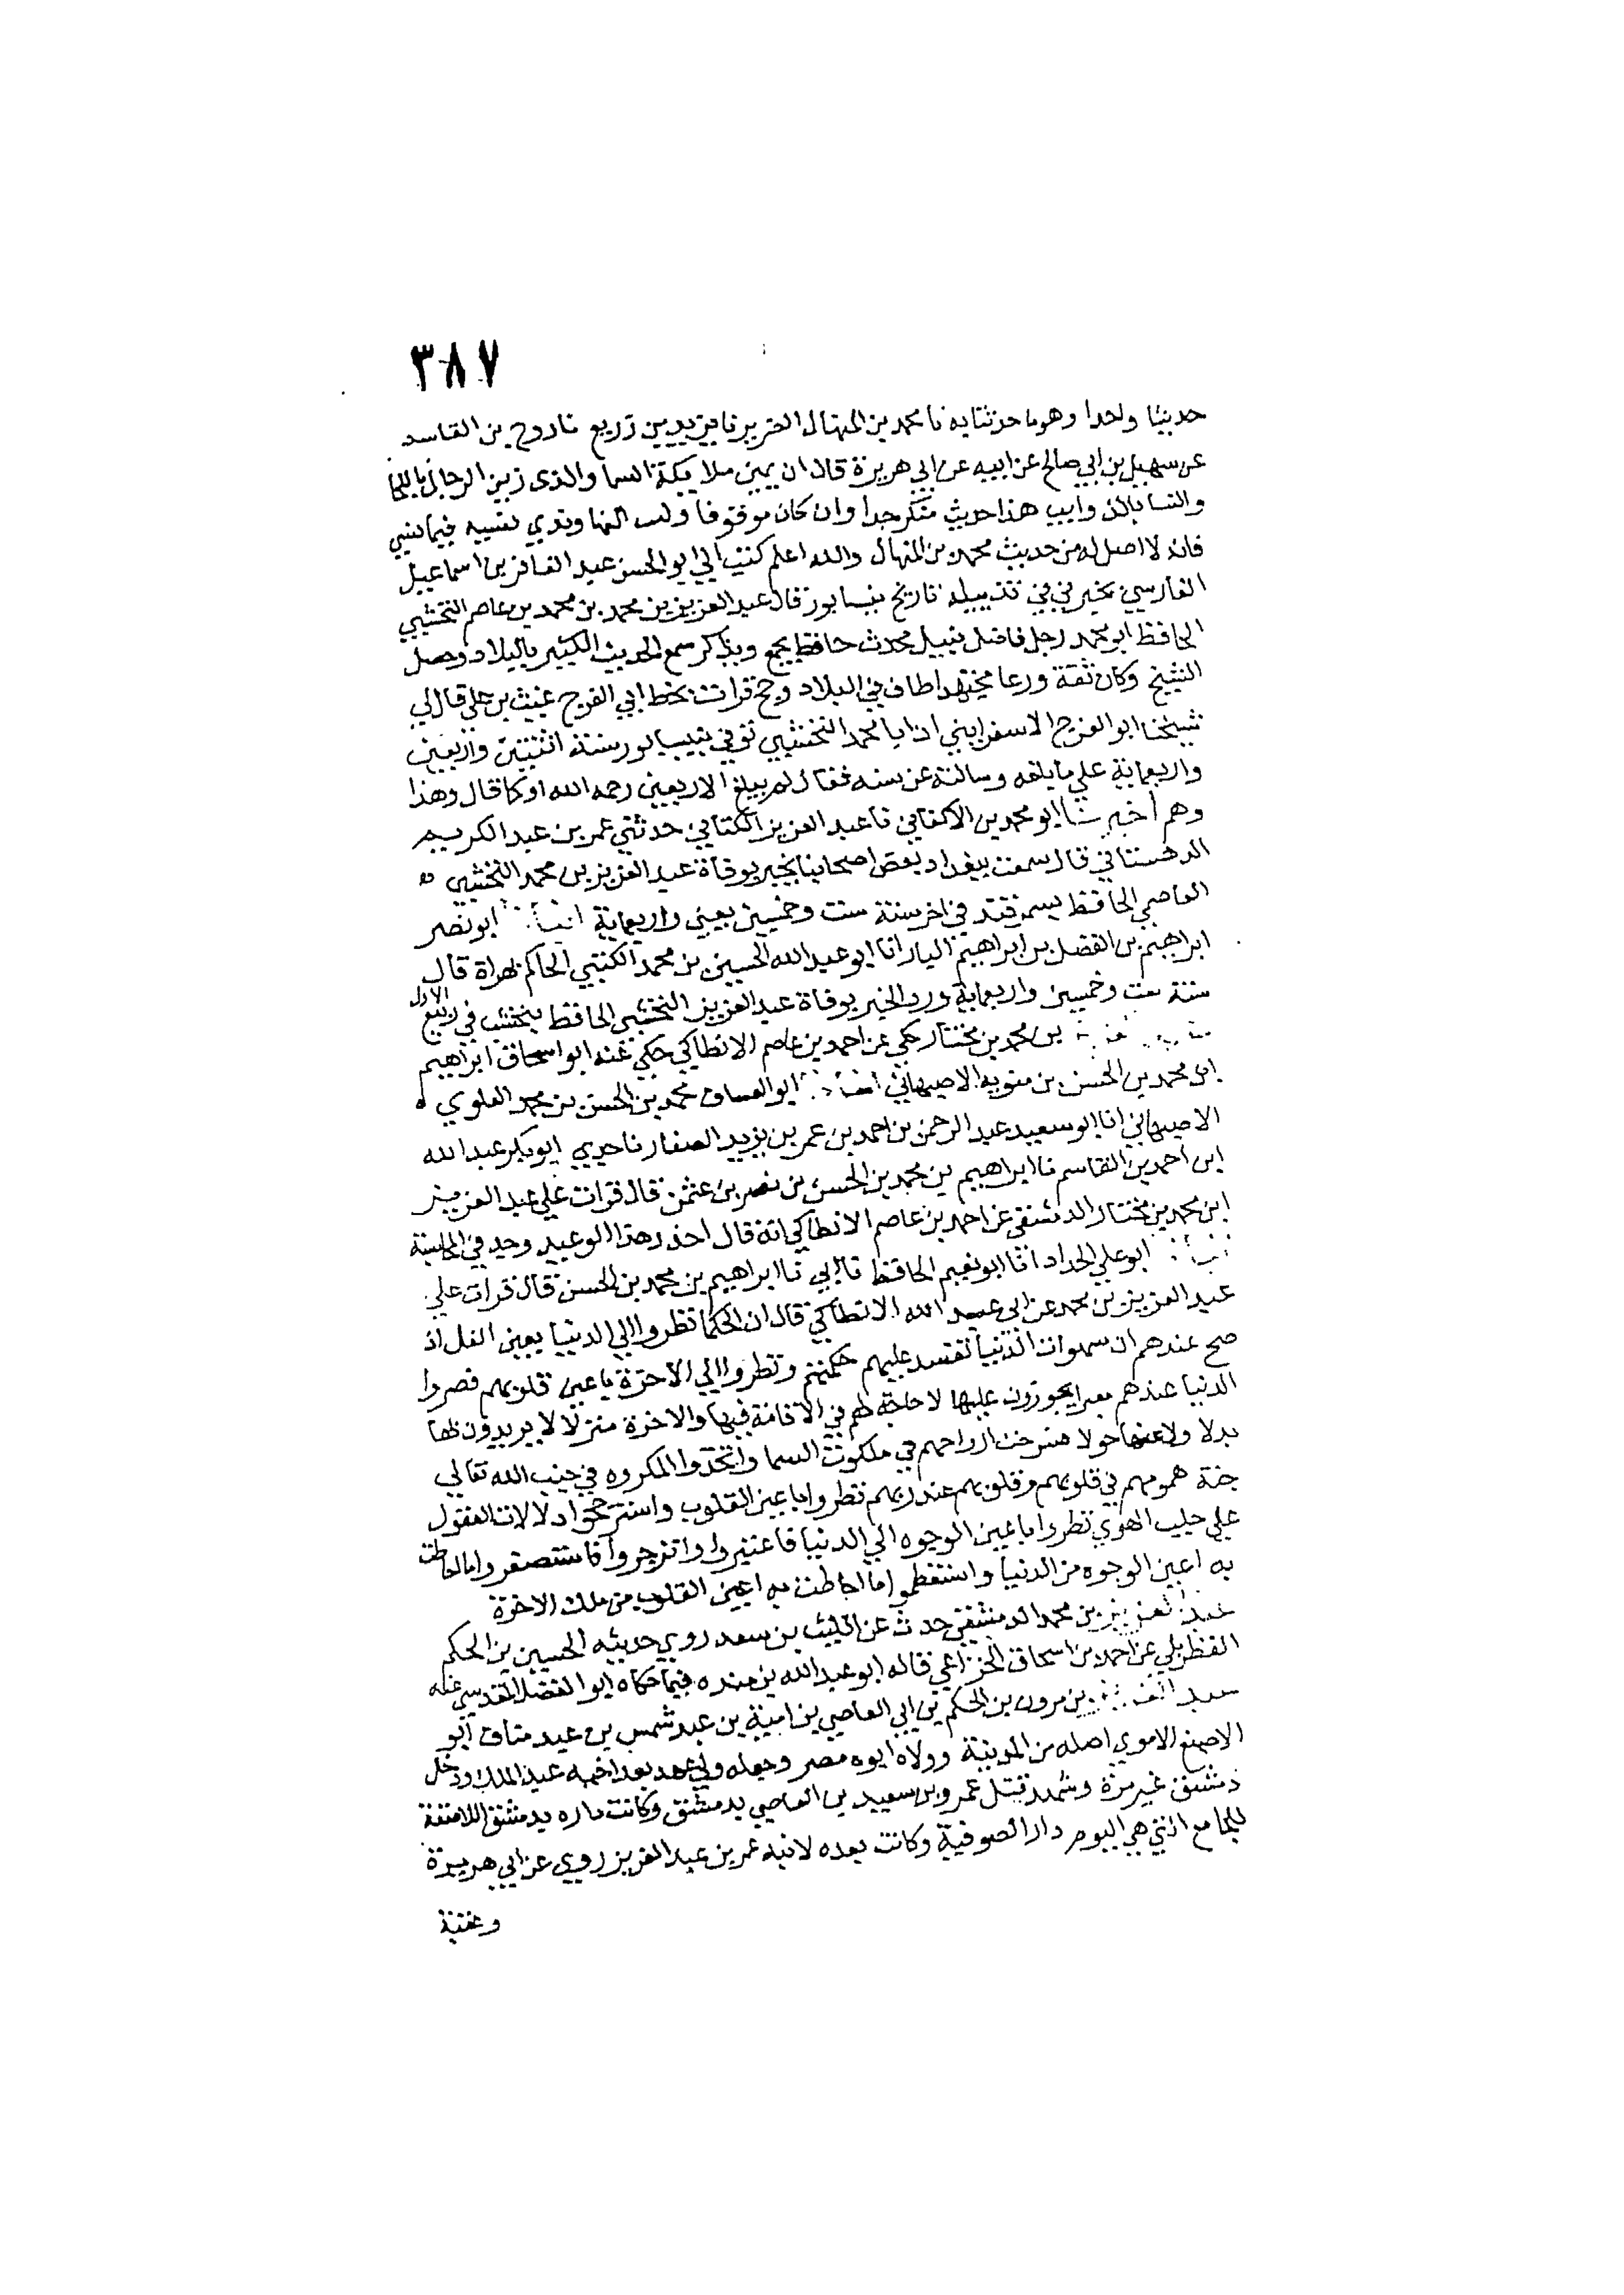 ٣٨٧
حديثا واحدا وهو ما حدثناه نا محمد بن المنهال الضرير نا يزيد بن زريع نا روح بن القاسم
عن سهيل بن ابي صالح عن ابيه عن ابي هريرة قال ان يمين ملايكة السما والذي زين الرجال باللحا
والنسا بالذوايب هذا حديث منكر جدا وان كان موقوفا وليت النهاوندي نسيه فيما نسي
فانه لا اصل له من حديث محمد بن المنهال والله اعلم كتب الي ابو الحسن عبد الغافر بن اسماعيل
الفارسي يخبرني في تذييله تاريخ نيسابور قال عبد العزيز بن محمد بن محمد بن عاصم النخشبي
الحافظ ابو محمد رجل فاضل نبيل محدث حافظ يجمع ويذاكر سمع الحديث الكثير بالبلاد وحصل
النسخ وكان ثقة ورعا مجتهدا طاف في البلاد وحج قرات بخط ابي الفرج غيث بن علي قال لي
شيخنا ابو الفرج الاسفرايني ان ابا محمد النخشبي توفي بنيسابور سنة اثنتين واربعين
واربعماية علي ما بلغه وسالته عن سنه فقال لم يبلغ الاربعين رحمه الله او كما قال وهذا
وهم أخبرنا ابو محمد بن الاكفاني نا عبد العزيز الكتاني حدثني عمر بن عبد الكريم
الدهستاني قال سمعت ببغداد بعض اصحابنا يخبر بوفاة عبد العزيز بن محمد النخشبي
العاصمي الحافظ بسمرقند في اخر سنة ست وخمسين يعني واربعماية انبأنا ابو نصر
ابراهيم بن الفضل بن ابراهيم البار انا ابو عبد الله الحسين بن محمد الكتبي الحاكم بهراة قال
سنة ست وخمسين واربعماية ورد الخبر بوفاة عبد العزيز النخشبي الحافظ بنخشب في ربيع الاول
بن محمد بن مختار حكي عن احمد بن عاصم الانطاكي حكي عنه ابو اسحاق ابراهيم
ابن محمد بن الحسن بن متويه الاصبهاني محمد بن الحسن بن محمد العلوي
الاصبهاني انا ابو سعيد عبد الرحمن بن احمد بن عمر بن يزيد الصفار نا جدي ابو بكر عبد الله
ابن احمد بن القاسم نا ابراهيم بن محمد بن الحسن بن نصر بن عثمن قال قرات علي عبد العزيز
ابن محمد بن مختار الدمشقي عن احمد بن عاصم الانطاكي انه قال احذر هذا الوعيد وجد في المحاسبة
ابو علي الحداد انا ابو نعيم الحافظ نا ابي نا ابراهيم بن محمد بن الحسن قال قرات علي
عبد العزيز بن محمد عن ابي عبد الله الانطاكي قال ان الحكما نظروا الي الدنيا بعين القل اذ
صح عندهم ان شهوات الدنيا تفسد عليهم حكمتهم ونظروا الي الاخرة باعين قلوبهم فصيروا
الدنيا عندهم معبرا يجوزون عليها لا حاجة لهم في الاقامة فيها والاخرة منزلا لا يريدون بها
بدلا ولا عنها حولا فسرحت ارواحهم في ملكوت السما واتخذوا المكروه في جنب الله تعالي
جنة همومهم في قلوبهم وقلوبهم عند ربهم نظروا باعين القلوب واسترجحوا دلالات العقول
علي جلب الهوي نظروا باعين الوجوه الي الدنيا فاعتبروا وانزجروا فاستصغروا ما احاطت
به اعين الوجوه من الدنيا واستعظموا ما احاطت به اعين القلوب من ملك الاخرة
عبد العزيز بن محمد الدمشقي حدث عن الليث بن سعد روي حديثه الحسين بن الحكم
القطربلي عن احمد بن اسحاق الخزاعي قاله ابو عبد الله بن منده فيما حكاه ابو الفضل المقدسي عنه
عبد العزيز بن مرون بن الحكم بن ابي العاصي بن امية بن عبد شمس بن عبد مناف ابو
الاصبغ الاموي اصله من المدينة وولاه ابوه مصر وجعله ولي عهد بعد اخيه عبد الملك ودخل
دمشق غير مرة وشهد قتل عمرو بن سعيد بن العاصي بدمشق وكانت داره بدمشق اللاصقة
للجامع التي هي اليوم دار الصوفية وكانت بعده لابنه عمر بن عبد العزيز روي عن ابي هريرة
وعقبة